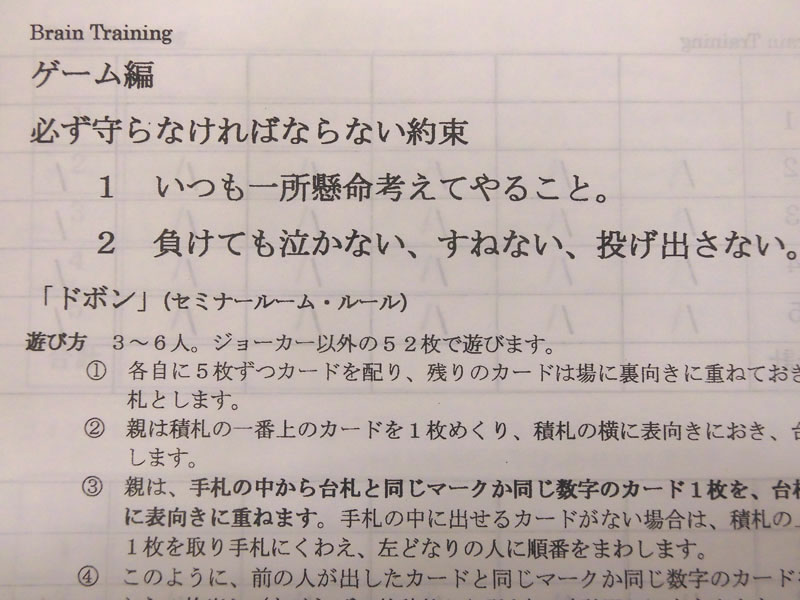 Brain Training
ゲーム編
必ず守らなければならない約束
1 いつも一所懸命考えてやること。
2 負けても泣かない、すねない、投げ出さない。
「ドボン」(セミナールーム・ルール)
遊び方 3～6人。ジョーカー以外の52枚で遊びます。
① 各自に5枚ずつカードを配り、残りのカードは場に裏向きに重ねておき
札とします。
② 親は積札の一番上のカードを1枚めくり、積札の横に表向きにおき、台
します。
③ 親は、手札の中から台札と同じマークか同じ数字のカード1枚を、台札
に表向きに重ねます。手札の中に出せるカードがない場合は、積札の上
1枚を取り手札にくわえ、左どなりの人に順番をまわします。
④ このように、前の人が出したカードと同じマークか同じ数字のカードを